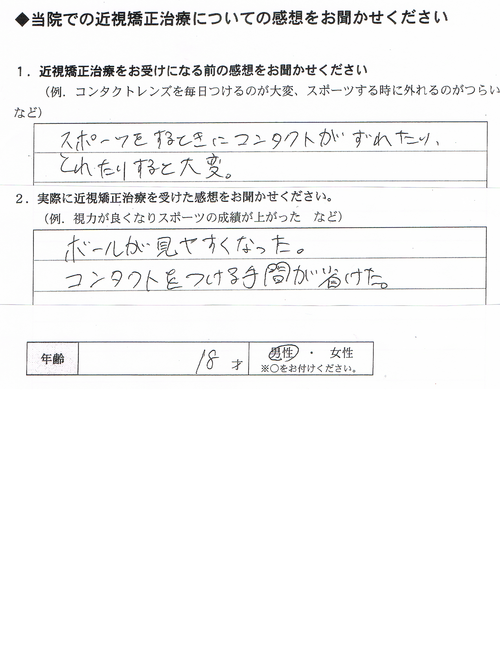 ◆当院での近視矯正治療についての感想をお聞かせください
１．近視矯正治療をお受けになる前の感想をお聞かせください
（例．コンタクトレンズを毎日つけるのが大変、スポーツする時に外れるのがつらい
など）
スポーツをするときにコンタクトがずれたり、
とれたりすると大変。
２．実際に近視矯正治療を受けた感想をお聞かせください。
（例．視力が良くなりスポーツの成績が上がった　など）
ボールが見やすくなった。
コンタクトをつける手間が省けた。
年齢 18才 男性・女性
※○をお付けください。